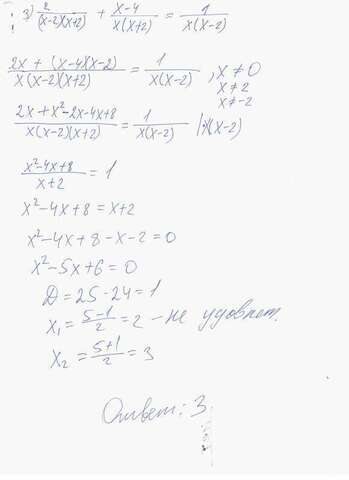 3) 2/((x-2)(x+2)) + (x-4)/(x(x+2)) = 1/(x(x-2))
(2x + (x-4)(x-2))/(x(x-2)(x+2)) = 1/(x(x-2)) , x ≠ 0
x ≠ 2
x ≠ -2
(2x + x²-2x-4x+8)/(x(x-2)(x+2)) = 1/(x(x-2)) |·x(x-2)
(x²-4x+8)/(x+2) = 1
x²-4x+8 = x+2
x²-4x+8-x-2=0
x²-5x+6=0
D=25-24=1
x₁= (5-1)/2 =2 - не удовлет.
x₂= (5+1)/2 = 3
Ответ: 3